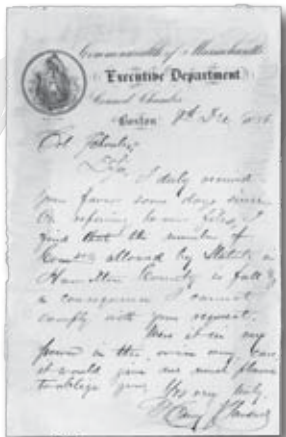 Commonwealth of Massachusetts
Executive Department
Council Chamber
Boston 8th Dec
Col.
Sir,
I duly received
your favor some days since
On referring to our files, I
find that the number of
allowed by Statute in
Hamilton County is full &
a consequence I cannot
comply with your request.
Were it in my
power in this,
it would give me much pleasure
to oblige you.
Yrs very truly
Henry J Gardner